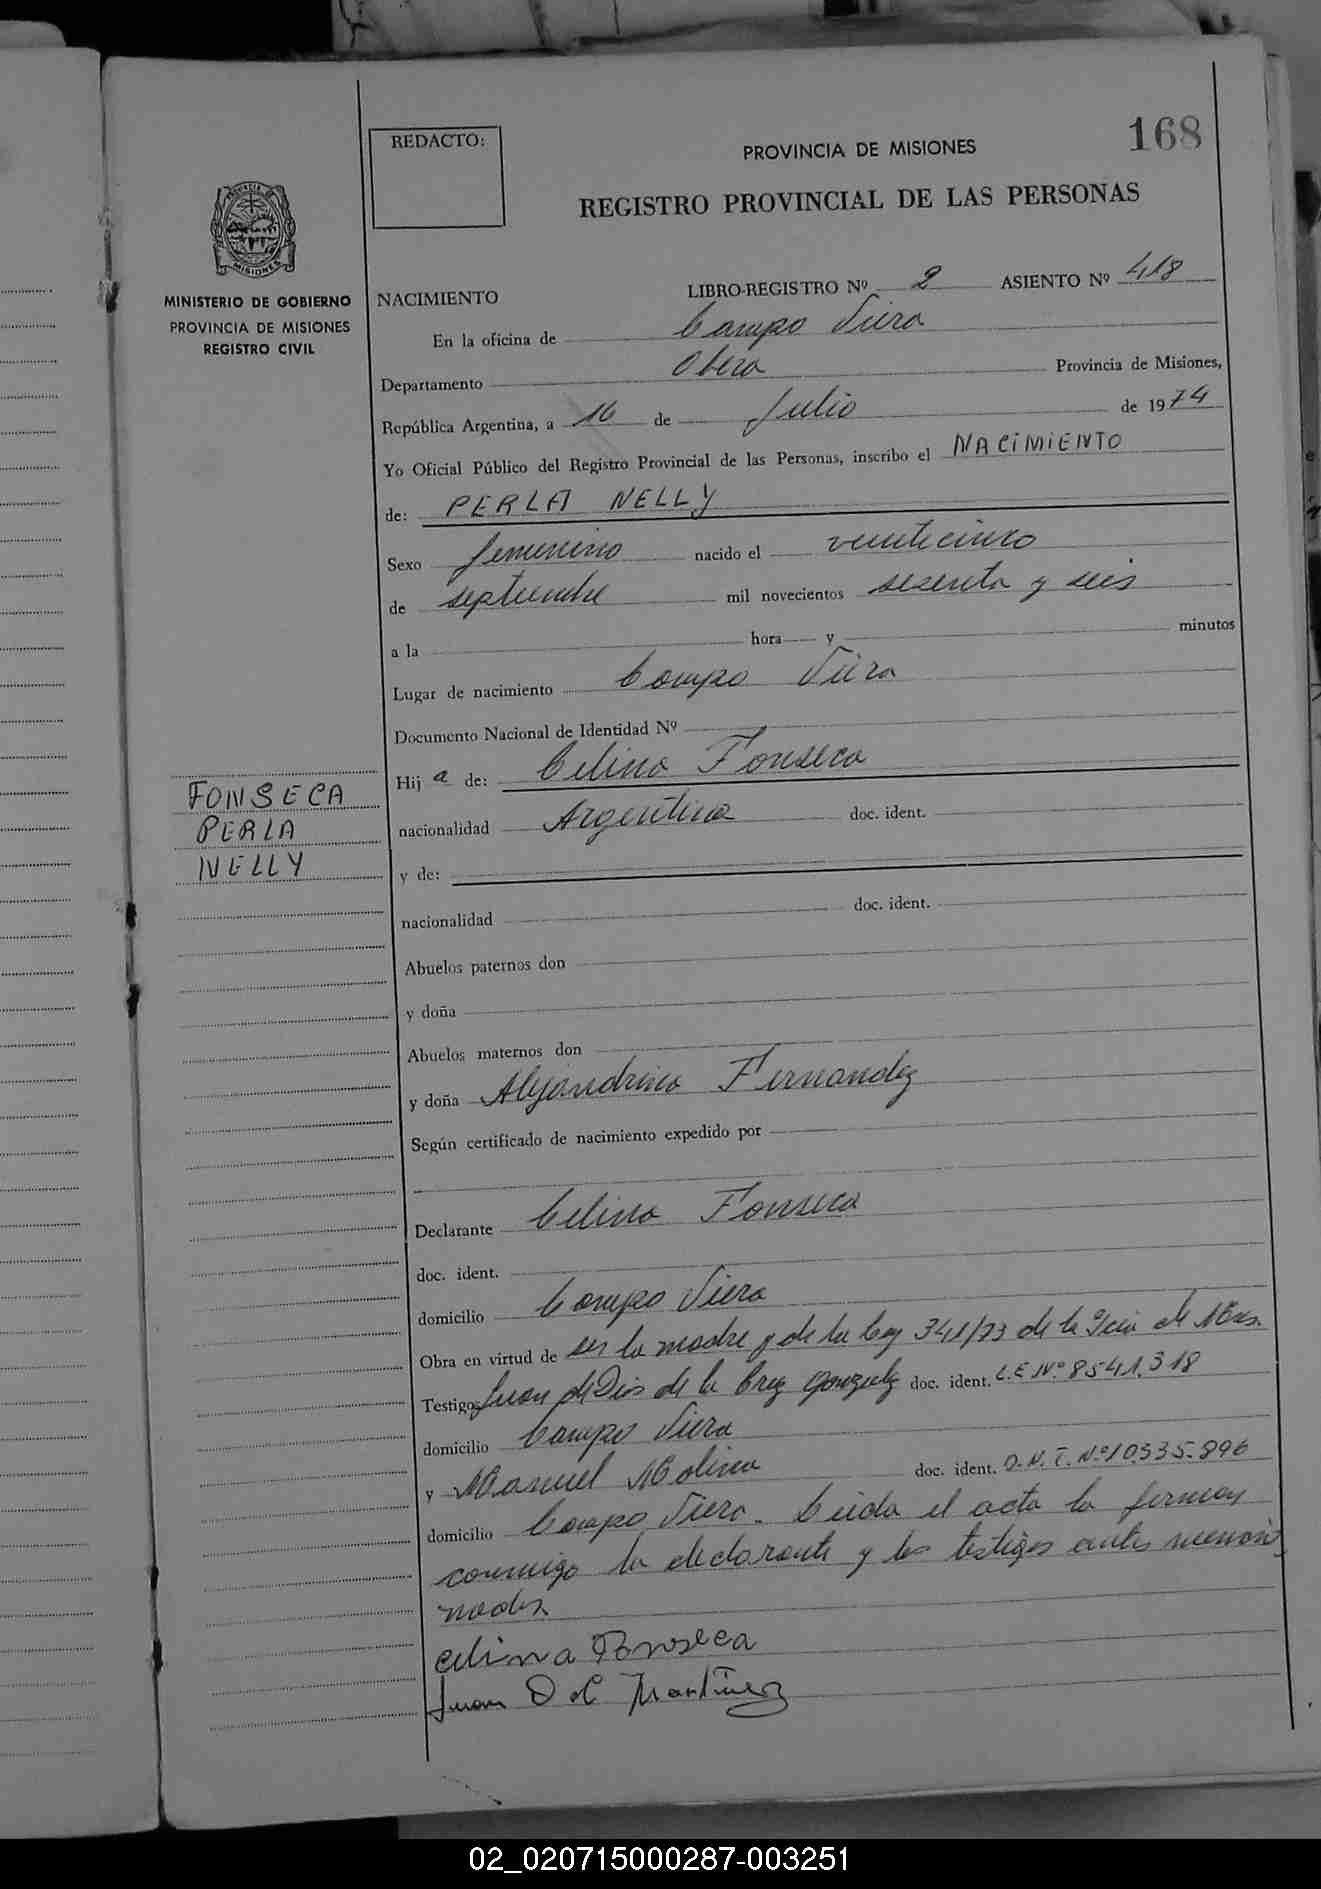 168
REDACTO:
PROVINCIA DE MISIONES
REGISTRO PROVINCIAL DE LAS PERSONAS
PROVINCIA DE
MISIONES
MINISTERIO DE GOBIERNO
PROVINCIA DE MISIONES
REGISTRO CIVIL
NACIMIENTO
LIBRO-REGISTRO Nº 2 ASIENTO Nº 418
En la oficina de Campo Viera
Departamento Obera Provincia de Misiones,
República Argentina, a 16 de Julio de 1974
Yo Oficial Público del Registro Provincial de las Personas, inscribo el NACIMIENTO
de: PERLA NELLY
Sexo femenino nacido el veinticinco
de septiembre mil novecientos sesenta y seis
a la hora y minutos
Lugar de nacimiento Campo Viera
Documento Nacional de Identidad Nº
Hij a de: Celina Fonseca
nacionalidad Argentina doc. ident.
FONSECA
PERLA
NELLY
y de:
nacionalidad doc. ident.
Abuelos paternos don
y doña
Abuelos maternos don
y doña Alejandrina Fernandez
Según certificado de nacimiento expedido por
Declarante Celina Fonseca
doc. ident.
domicilio Campo Viera
Obra en virtud de ser la madre y de la ley 341/73 de la Pcia de Mnes.
Testigos Juan de Dios de la Cruz doc. ident. L.E Nº 8541.318
domicilio Campo Viera
y Manuel Molina doc. ident. D.N.I. Nº 10.535.896
domicilio Campo Viera. Leida el acta la firman
conmigo la declarante y los testigos antes mencio
nados.
Celina Fonseca
Juan D d C Martinez
02_020715000287-003251